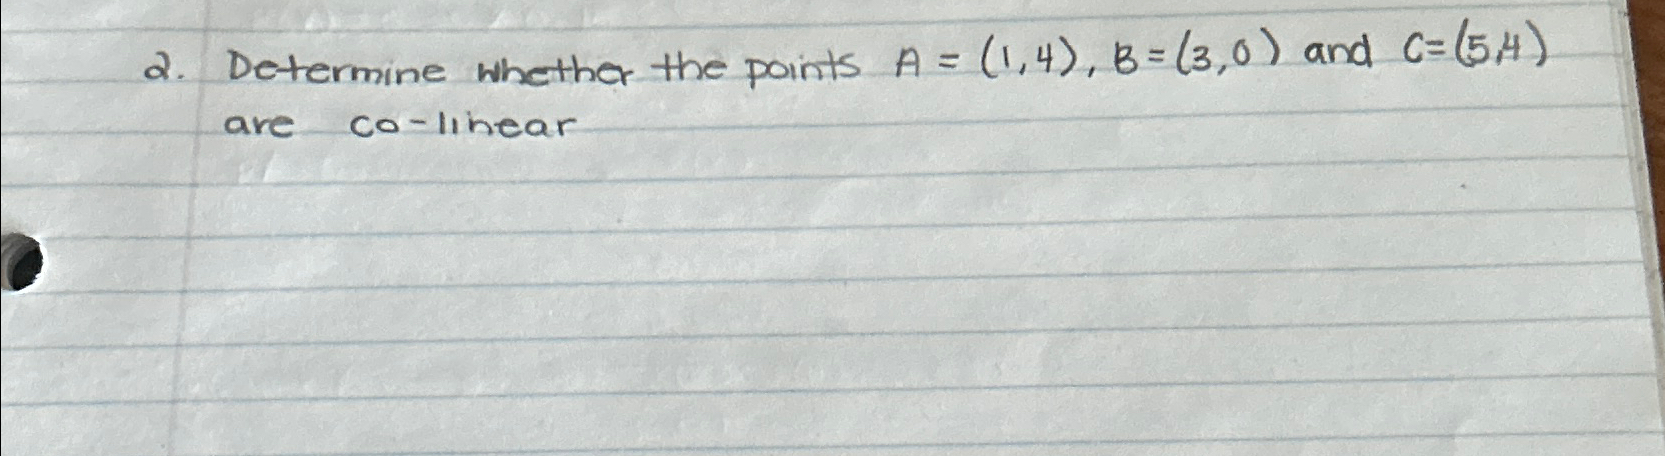 2. Determine whether the points A = (1,4), B = (3,0) and C = (5,4)
are co-linear